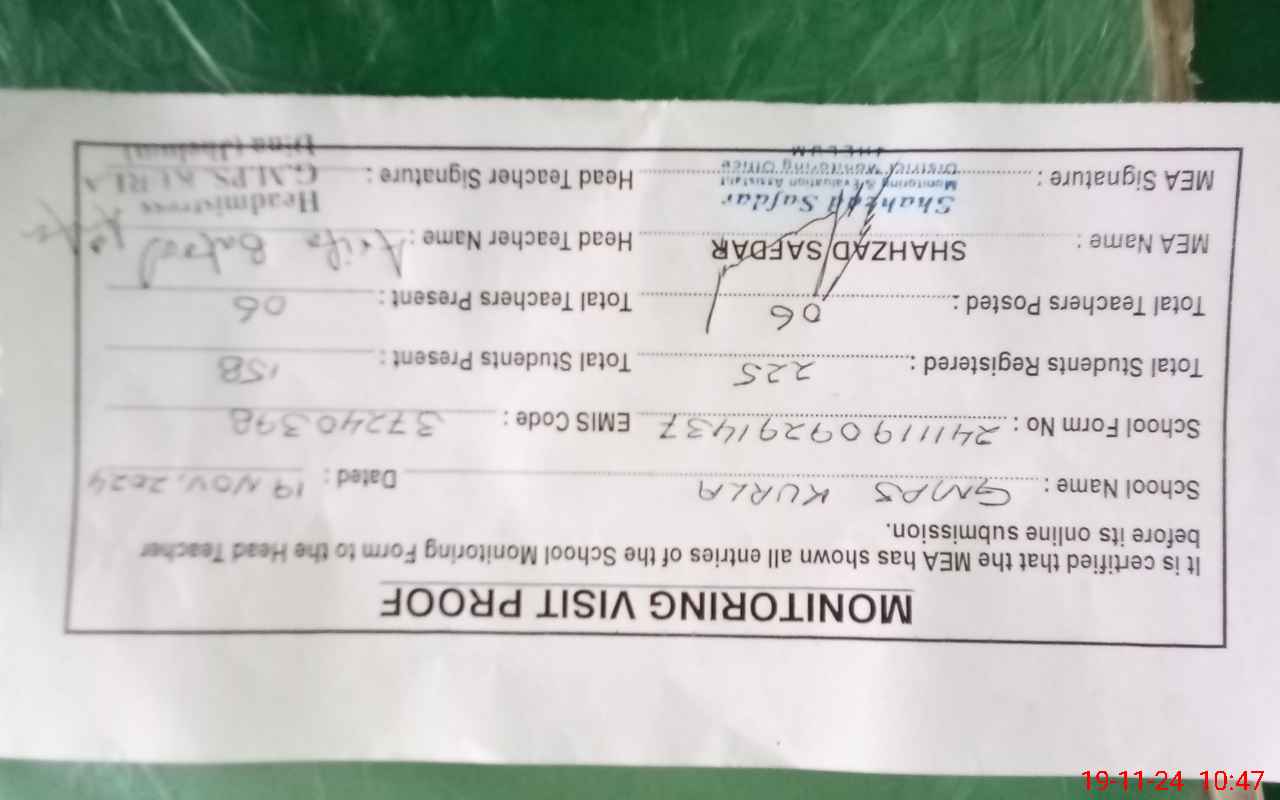 MONITORING VISIT PROOF
It is certified that the MEA has shown all entries of the School Monitoring Form to the Head Teacher
before its online submission.
School Name : GMPS KURLA Dated : 19 NOV, 2024
School Form No : 241119092911437 EMIS Code : 37240398
Total Students Registered : 225 Total Students Present : 158
Total Teachers Posted : 06 Total Teachers Present : 06
MEA Name : SHAHZAD SAFDAR Head Teacher Name : Batool
Shahzad Safdar Headmistress
Monitoring & Evaluation Assistant
MEA Signature : Head Teacher Signature : G.M.P.S. KURLA
District Monitoring Office
JHELUM Dina (Jhelum)
19-11-24 10:47